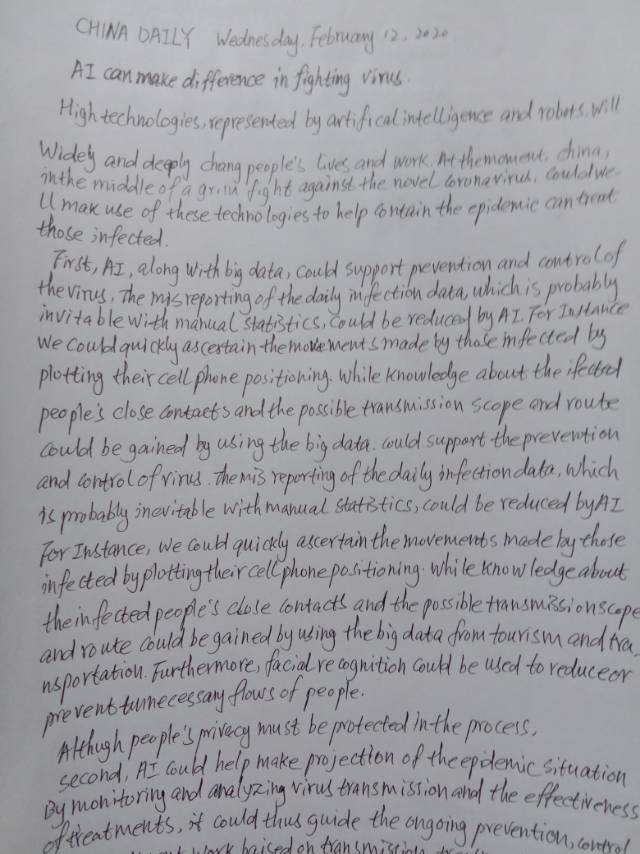 CHINA DAILY Wednesday, February 12, 2020
AI can make difference in fighting virus.
High technologies, represented by artifical intelligence and robots. will
Widely and deeply chang people's lives and work. At the moment. china,
in the middle of a grim fight against the novel coronavirus, could we
ll mak use of these technologies to help contain the epidemic can treat
those infected.
First, AI, along with big data, could support prevention and control of
the virus. The misreporting of the daily infection data, which is probably
invitable with manual statistics, could be reduced by AI. For Instance
we could quickly ascertain the movements made by those infected by
plotting their cell phone positioning. while knowledge about the ifected
people's close contacts and the possible transmission scope and route
could be gained by using the big data. could support the prevention
and control of virus. The mis reporting of the daily infection data, which
is probably inevitable with manual statistics, could be reduced by AI
For Instance, we could quickly ascertain the movements made by those
infected by plotting their cell phone positioning. while knowledge about
the infected people's close contacts and the possible transmission scope
and route could be gained by using the big data from tourism and tra
nsportation. Furthermore, facial recognition could be used to reduce or
prevent unnecessary flows of people.
Althugh people's privacy must be protected in the process,
second, AI could help make projection of the epdemic situation
By monitoring and analyzing virus transmission and the effectiveness
of treatments, it could thus guide the ongoing prevention, control
work baised on